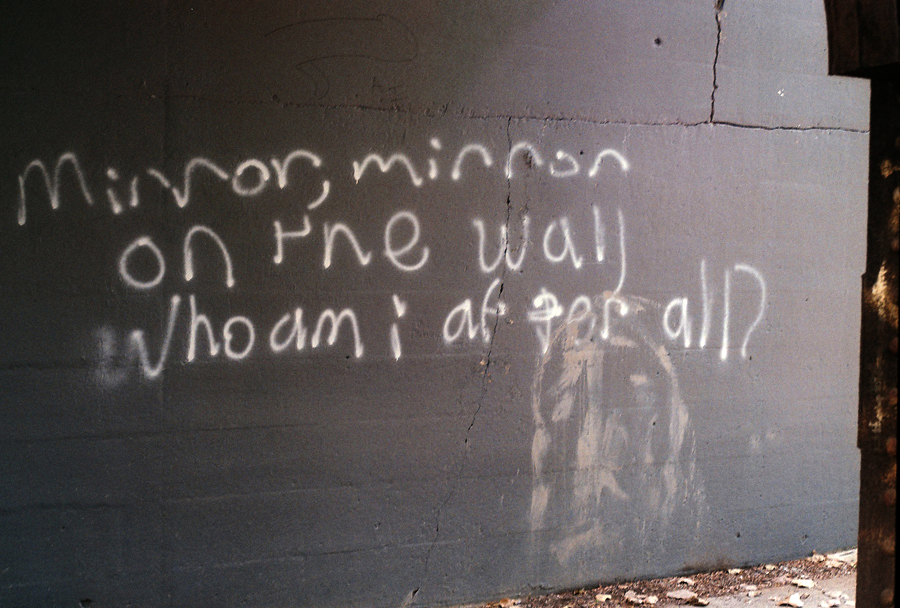 Mirror, mirror
on the wall
Who am i after all?